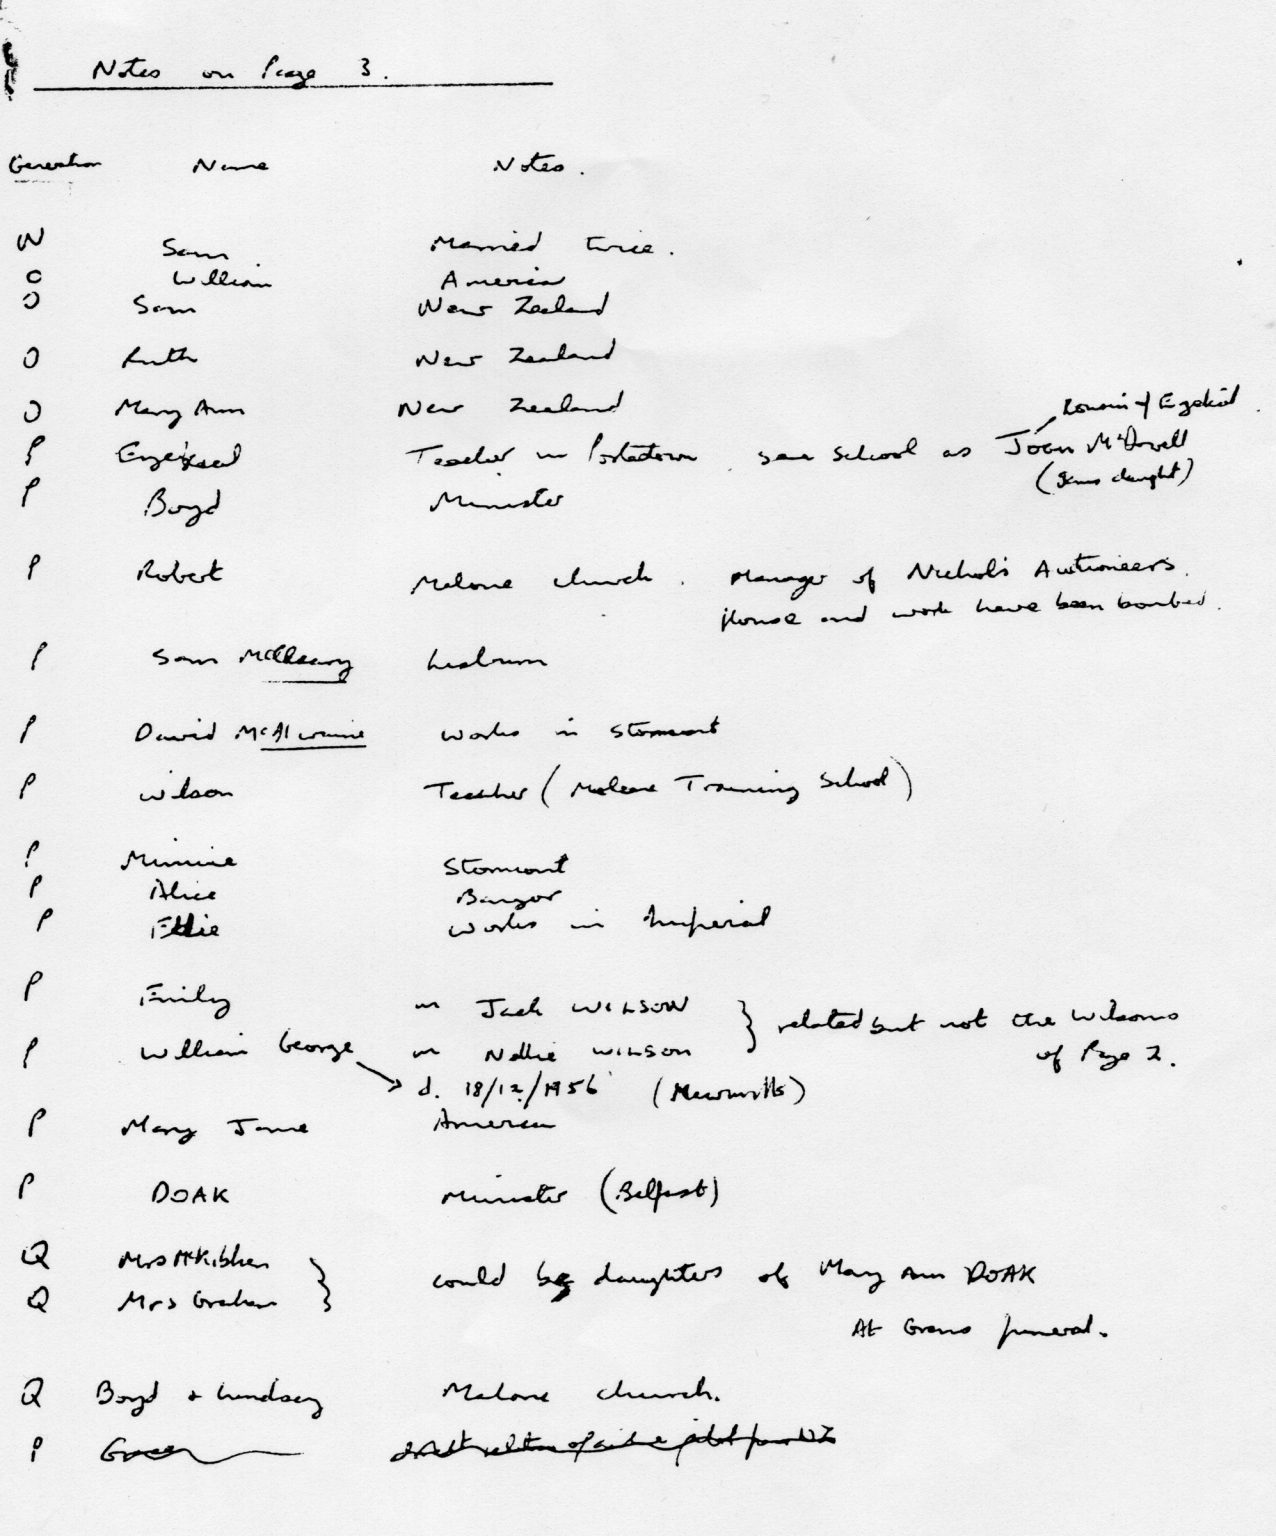 Notes on Page 3.
Generation Name Notes.
N Sam Married twice.
O William America
O Sam New Zealand
O Ruth New Zealand
O Mary Ann New Zealand
cousin of Ezekiel
P Ezekiel Teacher in Portadown. same school as Joan McDowell
(Sams daught)
P Boyd Minister
P Robert Malone church. Manager of Nichols Auctioneers.
House and work have been bombed.
P Sam McCleary Lisburn
P David McAlwaine works in Stormont
P Wilson Teacher (Malone Training School)
P Minnie Stormont
P Alice Bangor
P Ellie works in Imperial
P Emily m Jack WILSON } related but not the Wilsons
P William George m Nellie WILSON of Page 2.
d. 18/12/1956 (Newmills)
P Mary Jane America
P DOAK Minister (Belfast)
Q Mrs McKibben } could be daughters of Mary Ann DOAK
Q Mrs Graham At Grans funeral.
Q Boyd + Lindsay Malone church.
P